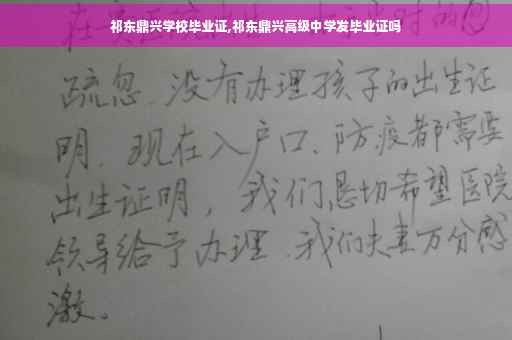 祁东鼎兴学校毕业证,祁东鼎兴高级中学发毕业证吗
疏忽、没有办理孩子的出生证
明、现在入户口、防疫都需要
出生证明，我们恳切希望医院
领导给予办理、我们夫妻万分感
激。